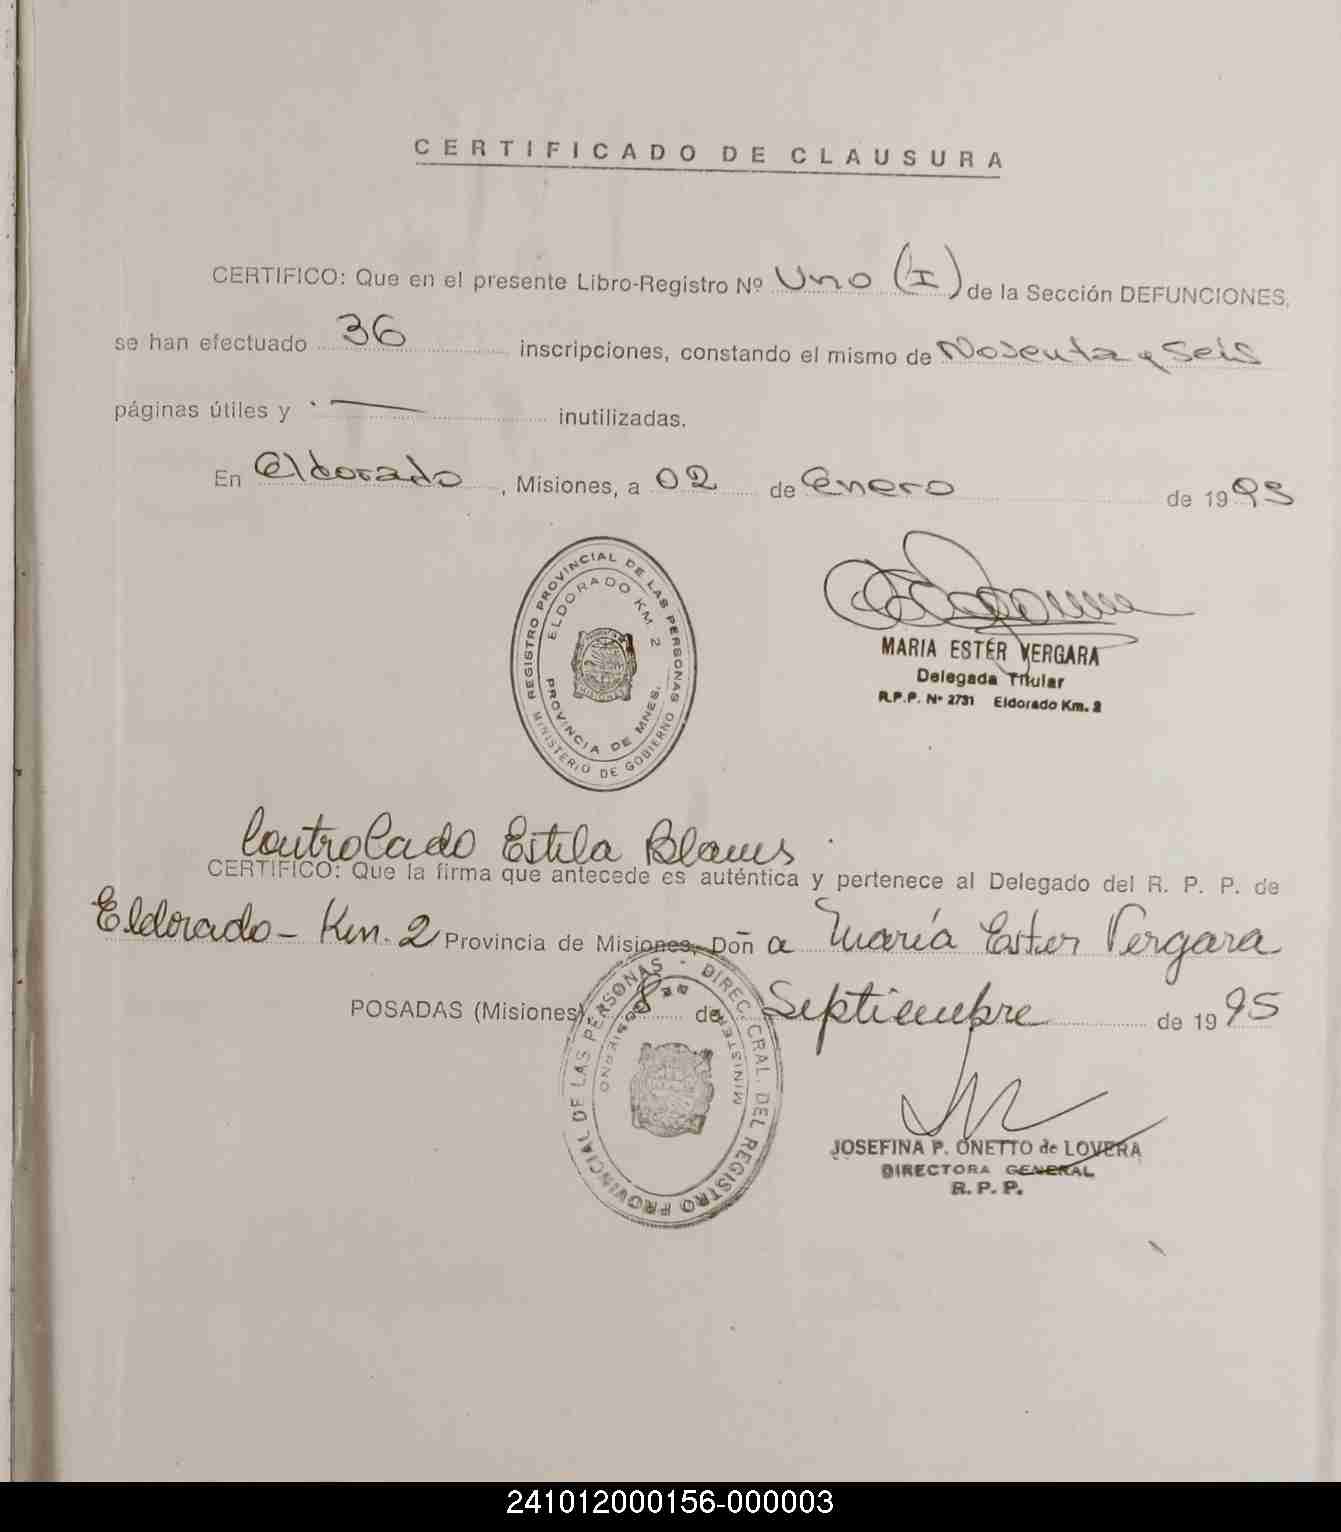 CERTIFICADO DE CLAUSURA
CERTIFICO: Que en el presente Libro-Registro Nº Uno (I) de la Sección DEFUNCIONES,
se han efectuado 36 inscripciones, constando el mismo de Noventa y seis
páginas útiles y — inutilizadas.
En Eldorado, Misiones, a 02 de Enero de 1995
REGISTRO PROVINCIAL DE LAS PERSONAS
MINISTERIO DE GOBIERNO
ELDORADO KM. 2
PROVINCIA DE MNES.
MARIA ESTER VERGARA
Delegada Titular
R.P.P. Nº 2731 Eldorado Km. 2
Controlado Estela
CERTIFICO: Que la firma que antecede es auténtica y pertenece al Delegado del R. P. P. de
Eldorado - Km. 2 Provincia de Misiones, Doña María Ester Vergara
POSADAS (Misiones) 8 de Septiembre de 1995
DIREC. GRAL. DEL REGISTRO PROVINCIAL DE LAS PERSONAS -
JOSEFINA P. ONETTO de LOVERA
DIRECTORA GENERAL
R. P. P.
241012000156-000003